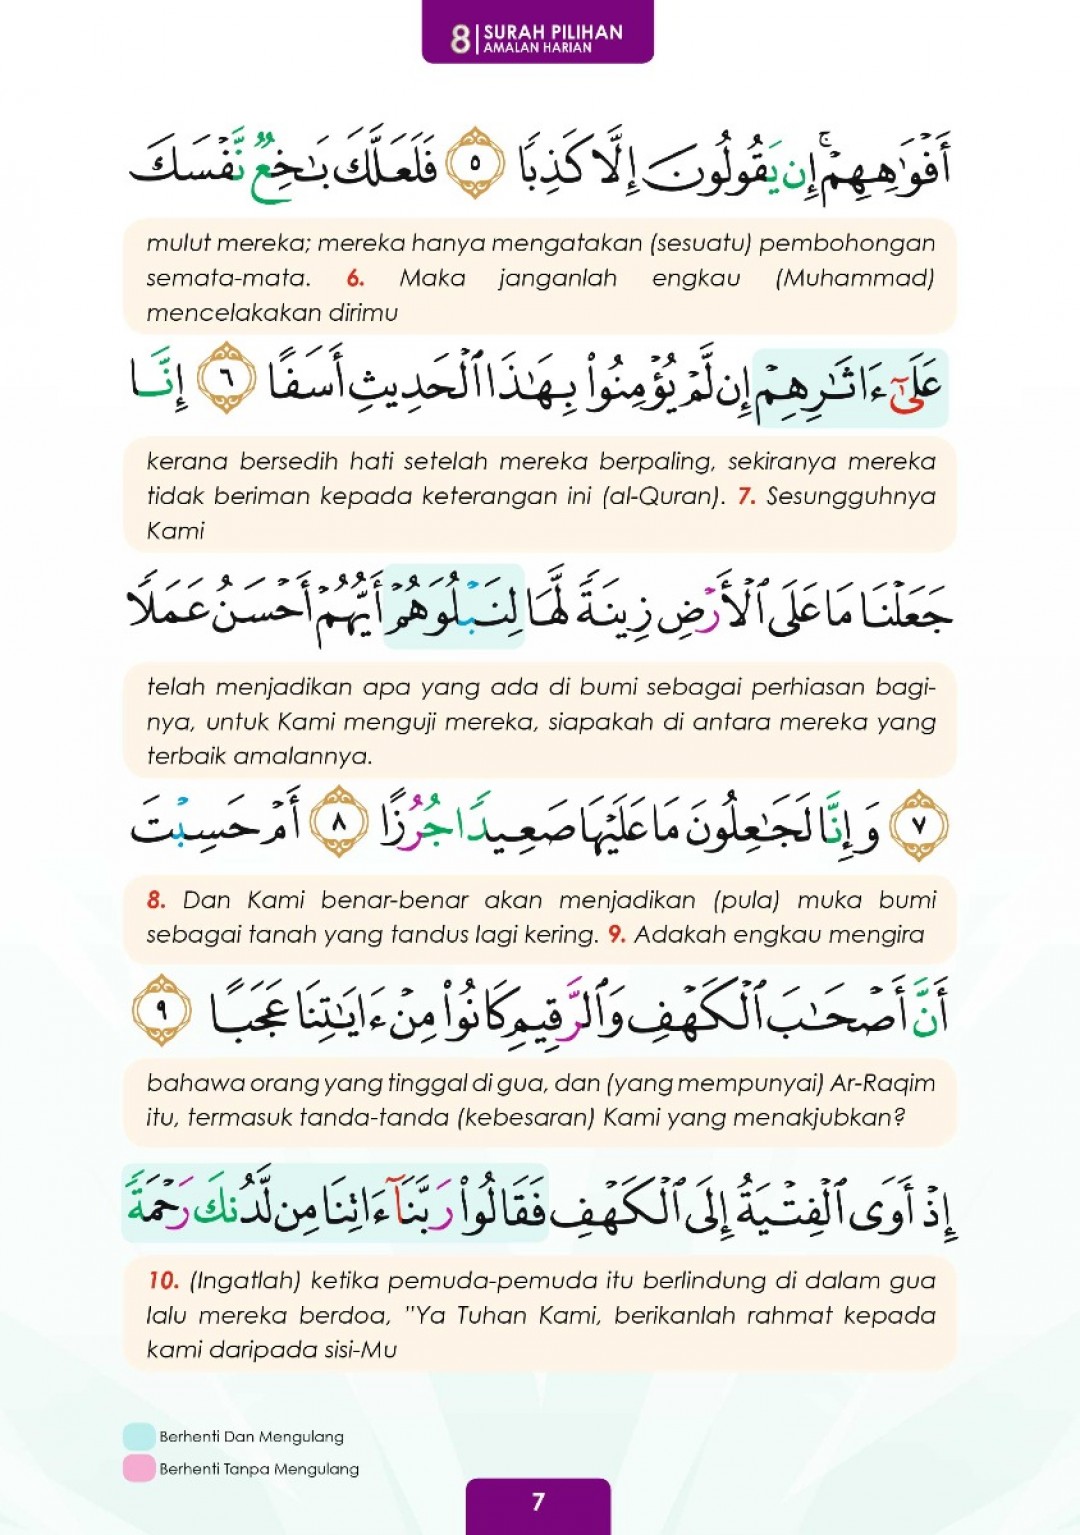 8 | SURAH PILIHAN
AMALAN HARIAN
أَفْوَٰهِهِمْ ۚ إِن يَقُولُونَ إِلَّا كَذِبًا ٥ فَلَعَلَّكَ بَـٰخِعٌ نَّفْسَكَ
mulut mereka; mereka hanya mengatakan (sesuatu) pembohongan
semata-mata. 6. Maka janganlah engkau (Muhammad)
mencelakakan dirimu
عَلَىٰٓ ءَاثَـٰرِهِمْ إِن لَّمْ يُؤْمِنُوا۟ بِهَـٰذَا ٱلْحَدِيثِ أَسَفًا ٦ إِنَّا
kerana bersedih hati setelah mereka berpaling, sekiranya mereka
tidak beriman kepada keterangan ini (al-Quran). 7. Sesungguhnya
Kami
جَعَلْنَا مَا عَلَى ٱلْأَرْضِ زِينَةً لَّهَا لِنَبْلُوَهُمْ أَيُّهُمْ أَحْسَنُ عَمَلًا
telah menjadikan apa yang ada di bumi sebagai perhiasan bagi-
nya, untuk Kami menguji mereka, siapakah di antara mereka yang
terbaik amalannya.
٧ وَإِنَّا لَجَـٰعِلُونَ مَا عَلَيْهَا صَعِيدًا جُرُزًا ٨ أَمْ حَسِبْتَ
8. Dan Kami benar-benar akan menjadikan (pula) muka bumi
sebagai tanah yang tandus lagi kering. 9. Adakah engkau mengira
أَنَّ أَصْحَـٰبَ ٱلْكَهْفِ وَٱلرَّقِيمِ كَانُوا۟ مِنْ ءَايَـٰتِنَا عَجَبًا ٩
bahawa orang yang tinggal di gua, dan (yang mempunyai) Ar-Raqim
itu, termasuk tanda-tanda (kebesaran) Kami yang menakjubkan?
إِذْ أَوَى ٱلْفِتْيَةُ إِلَى ٱلْكَهْفِ فَقَالُوا۟ رَبَّنَآ ءَاتِنَا مِن لَّدُنكَ رَحْمَةً
10. (Ingatlah) ketika pemuda-pemuda itu berlindung di dalam gua
lalu mereka berdoa, "Ya Tuhan Kami, berikanlah rahmat kepada
kami daripada sisi-Mu
Berhenti Dan Mengulang
Berhenti Tanpa Mengulang
7